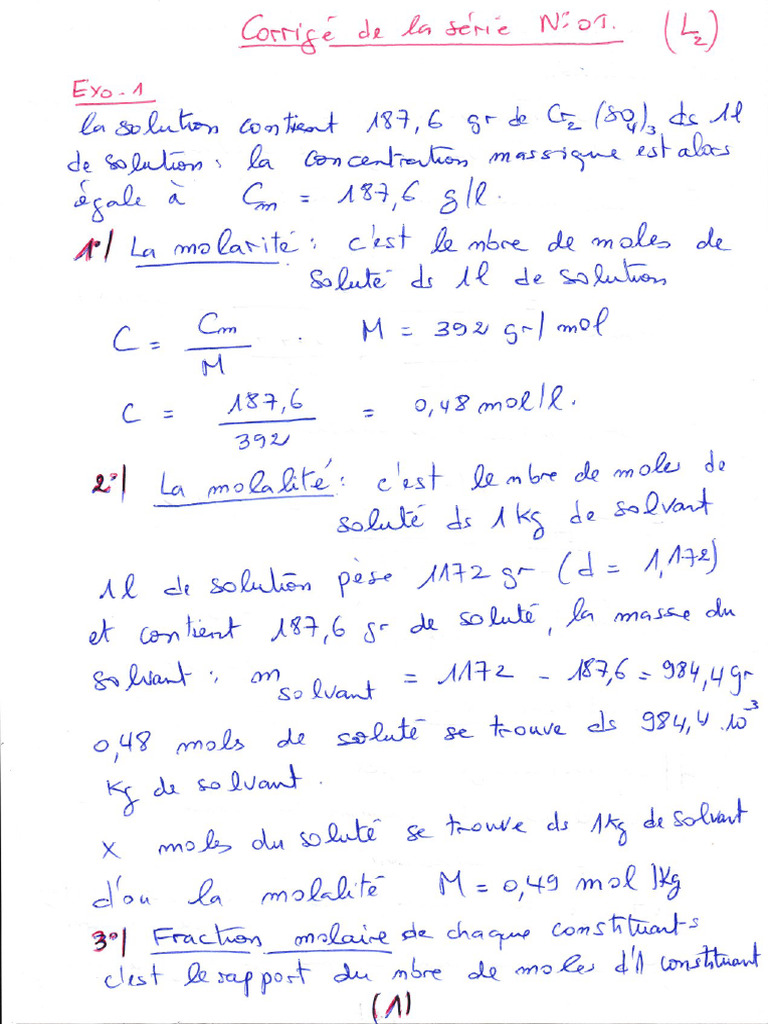 Corrigé de la série N°:01. (L2)
Exo-1
la solution contient 187,6 gr de Cr2 (SO4)3 ds 1l
de solution : la concentration massique est alors
égale à Cm = 187,6 g/l.
1°/ La molarité : c'est le nbre de moles de
soluté ds 1l de solution
C = Cm / M . M = 392 gr/mol
C = 187,6 / 392 = 0,48 mol/l.
2°/ La molalité : c'est le nbre de moles de
soluté ds 1kg de solvant
1l de solution pèse 1172 gr (d = 1,172)
et contient 187,6 gr de soluté, la masse du
solvant : m solvant = 1172 - 187,6 = 984,4 gr
0,48 mols de soluté se trouve ds 984,4.10^-3
Kg de solvant.
x moles du soluté se trouve ds 1kg de solvant
d'ou la molalité M = 0,49 mol/Kg
3°/ Fraction molaire de chaque constituants
c'est le rapport du nbre de moles d'1 constituant
(1)